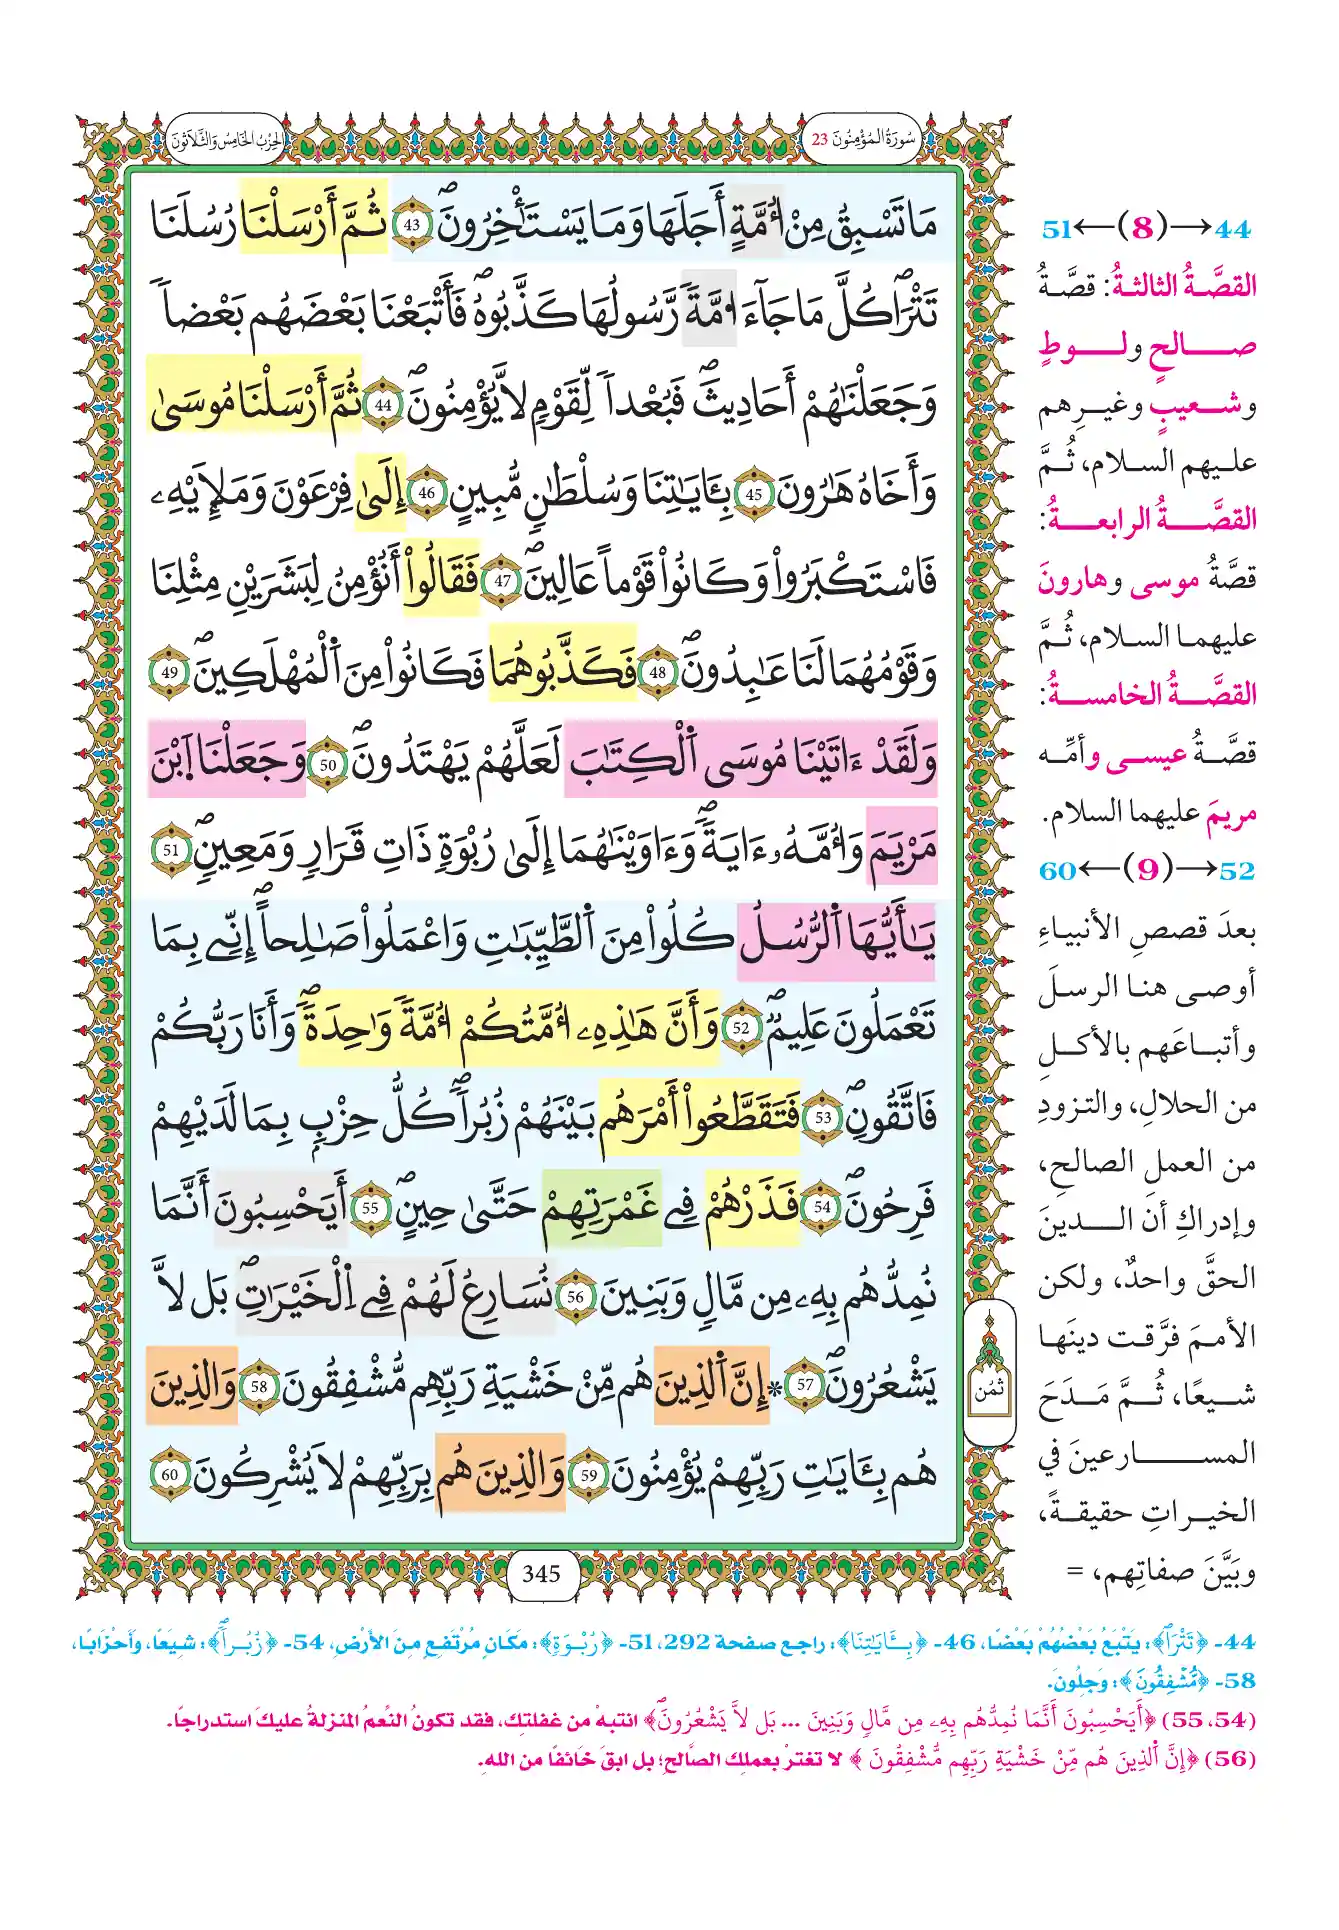 سُورَةُ الْمُؤْمِنُونَ 23
الحِزْبُ الخَامِسُ وَالثَّلَاثُونَ
مَا تَسْبِقُ مِنْ اُمَّةٍ أَجَلَهَا وَمَا يَسْتَـْٔخِرُونَۖ 43 ثُمَّ أَرْسَلْنَا رُسُلَنَا
تَتْر۪اۖ كُلَّ مَا جَآءَ اُمَّةٗ رَّسُولُهَا كَذَّبُوهُۖ فَأَتْبَعْنَا بَعْضَهُم بَعْضاٗ
وَجَعَلْنَٰهُمْ أَحَادِيثَۖ فَبُعْداٗ لِّقَوْمٖ لَّا يُؤْمِنُونَۖ 44 ثُمَّ أَرْسَلْنَا مُوسَىٰ
وَأَخَاهُ هَٰرُونَ 45 بِـَٔايَٰتِنَا وَسُلْطَٰنٖ مُّبِينٍ 46 إِلَىٰ فِرْعَوْنَ وَمَلَإِيْهِۦ
فَاسْتَكْبَرُواْ وَكَانُواْ قَوْماً عَالِينَۖ 47 فَقَالُواْ أَنُؤْمِنُ لِبَشَرَيْنِ مِثْلِنَا
وَقَوْمُهُمَا لَنَا عَٰبِدُونَۖ 48 فَكَذَّبُوهُمَا فَكَانُواْ مِنَ اَ۬لْمُهْلَكِينَۖ 49
وَلَقَدْ ءَاتَيْنَا مُوسَى اَ۬لْكِتَٰبَ لَعَلَّهُمْ يَهْتَدُونَۖ 50 وَجَعَلْنَا اَ۪بْنَ
مَرْيَمَ وَأُمَّهُۥ ءَايَةٗۖ وَءَاوَيْنَٰهُمَا إِلَىٰ رُبْوَةٖ ذَاتِ قَرَارٖ وَمَعِينٖۖ 51
يَٰأَيُّهَا اَ۬لرُّسُلُ كُلُواْ مِنَ اَ۬لطَّيِّبَٰتِ وَاعْمَلُواْ صَٰلِحاًۖ إِنِّے بِمَا
تَعْمَلُونَ عَلِيمٞۖ 52 وَأَنَّ هَٰذِهِۦ أُمَّتُكُمْ أُمَّةٗ وَٰحِدَةٗۖ وَأَنَا رَبُّكُمْ
فَاتَّقُونِۖ 53 فَتَقَطَّعُواْ أَمْرَهُم بَيْنَهُمْ زُبُراٗۖ كُلُّ حِزْبِۢ بِمَا لَدَيْهِمْ
فَرِحُونَۖ 54 فَذَرْهُمْ فِے غَمْرَتِهِمْ حَتَّىٰ حِينٍۖ 55 أَيَحْسِبُونَ أَنَّمَا
نُمِدُّهُم بِهِۦ مِن مَّالٖ وَبَنِينَ 56 نُسَارِعُ لَهُمْ فِے اِ۬لْخَيْرَٰتِۖ بَل لَّا
يَشْعُرُونَۖ 57 * إِنَّ اَ۬لذِينَ هُم مِّنْ خَشْيَةِ رَبِّهِم مُّشْفِقُونَ 58 وَالذِينَ
هُم بِـَٔايَٰتِ رَبِّهِمْ يُؤْمِنُونَ 59 وَالذِينَ هُم بِرَبِّهِمْ لَا يُشْرِكُونَ 60
ثمُن
345
44→(8)←51
القصَّةُ الثالثةُ: قصَّةُ
صالحٍ ولوطٍ
وشعيبٍ وغيرِهم
عليهم السلام، ثُمَّ
القصَّةُ الرابعةُ:
قصَّةُ موسى وهارونَ
عليهما السلام، ثُمَّ
القصَّةُ الخامسةُ:
قصَّةُ عيسى وأمِّه
مريمَ عليهما السلام.
52→(9)←60
بعدَ قصصِ الأنبياءِ
أوصى هنا الرسلَ
وأتباعَهم بالأكلِ
من الحلالِ، والتزودِ
من العملِ الصالحِ،
وإدراكِ أن الدينَ
الحقَّ واحدٌ، ولكن
الأممَ فرَّقت دينَها
شيعًا، ثُمَّ مَدَحَ
المسارعينَ في
الخيراتِ حقيقةً،
وبَيَّنَ صفاتِهم، =
44- ﴿تَتْر۪اۖ﴾: يَتْبَعُ بَعْضُهُمْ بَعْضًا، 46- ﴿بِـَٔايَٰتِنَا﴾: راجع صفحة 292، 51- ﴿رُبْوَةٖ﴾: مَكَانٍ مُرْتَفِعٍ مِنَ الأَرْضِ، 54- ﴿زُبُراٗۖ﴾: شِيَعًا، وَأَحْزَابًا،
58- ﴿مُّشْفِقُونَ﴾: وَجِلُونَ.
(54، 55) ﴿أَيَحْسِبُونَ أَنَّمَا نُمِدُّهُم بِهِۦ مِن مَّالٖ وَبَنِينَ ... بَل لَّا يَشْعُرُونَۖ﴾ انتبهْ من غفلتِك، فقد تكونُ النِّعمُ المنزلةُ عليكَ استدراجًا.
(56) ﴿إِنَّ اَ۬لذِينَ هُم مِّنْ خَشْيَةِ رَبِّهِم مُّشْفِقُونَ﴾ لا تغترْ بعملِك الصَّالحِ؛ بل ابقَ خَائفًا من اللهِ.